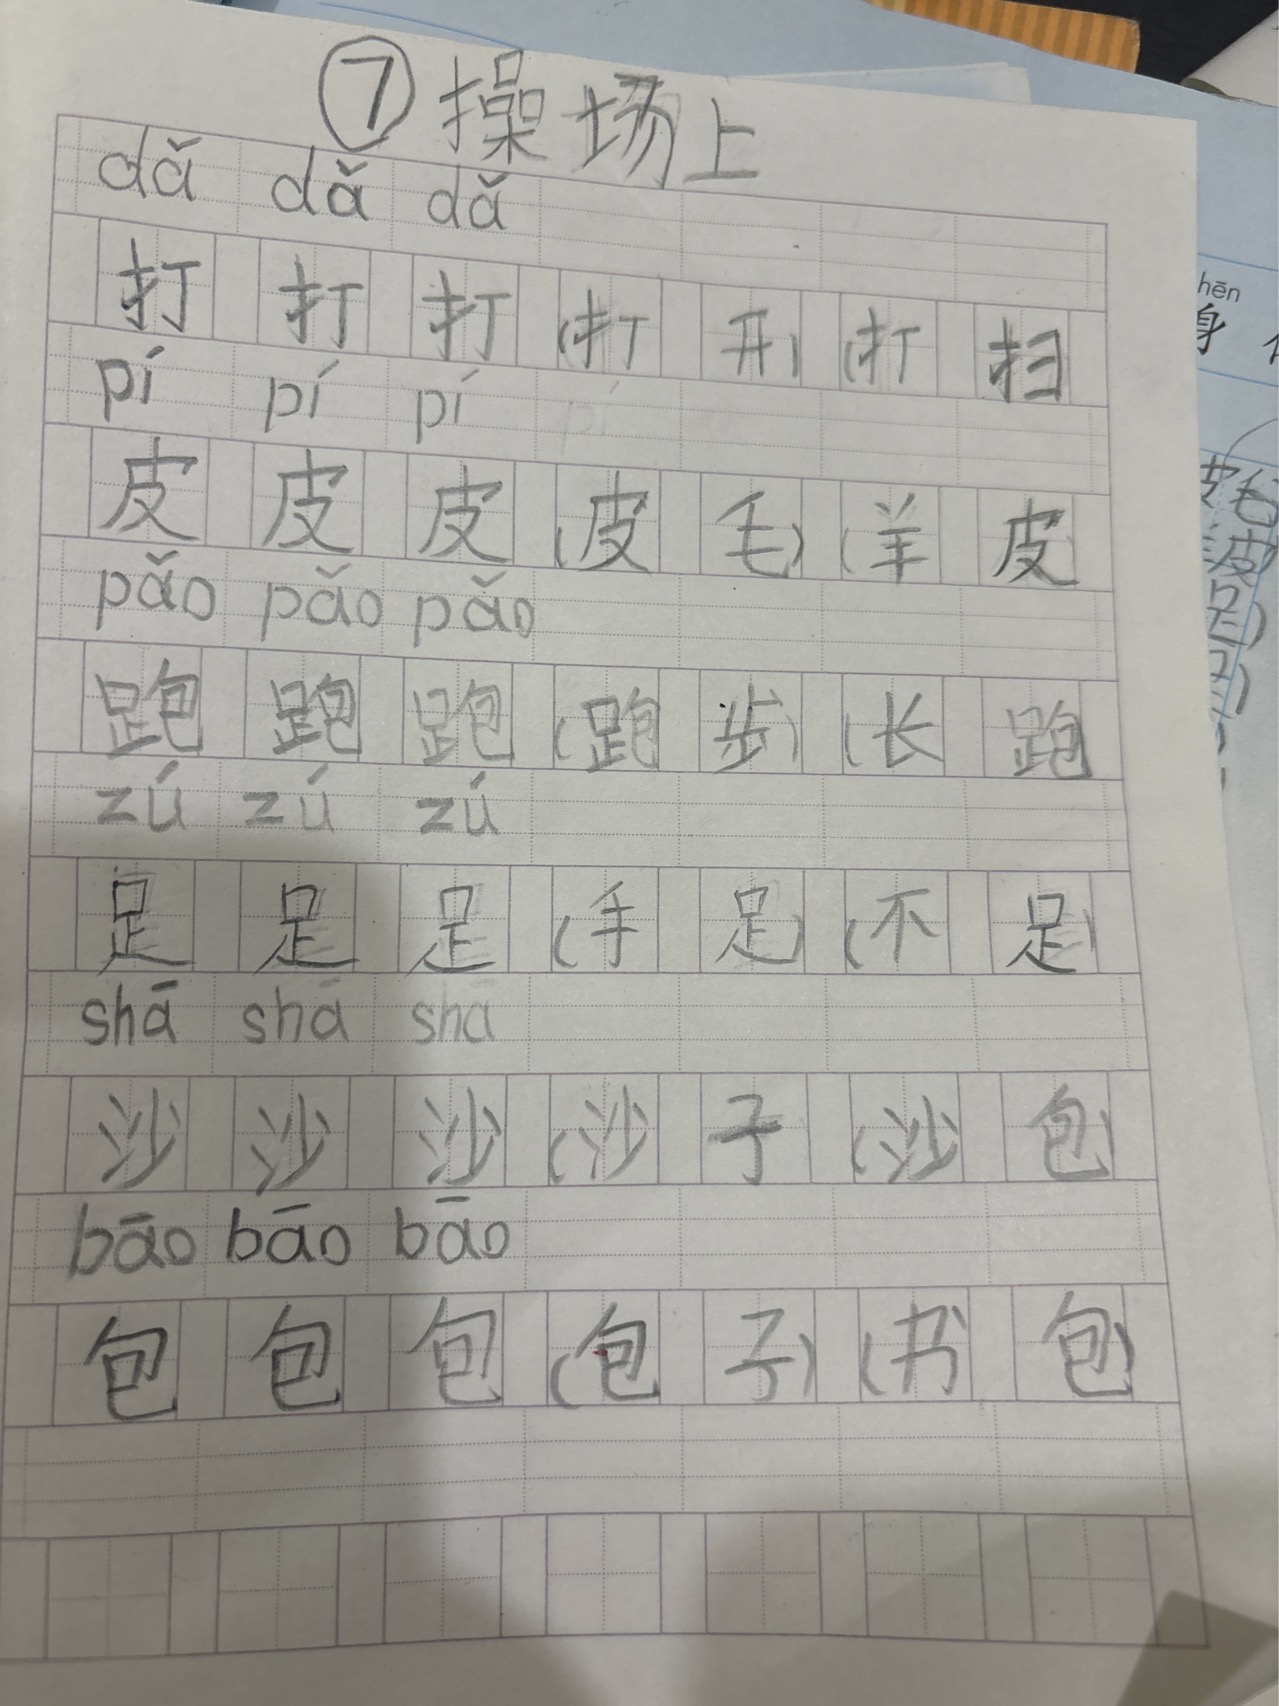 ⑦ 操场上
dǎ dǎ dǎ
打 打 打 (打 开) (打 扫
pí pí pí pí
皮 皮 皮 (皮 毛) (羊 皮
pǎo pǎo pǎo
跑 跑 跑 (跑 步) (长 跑
zú zú zú
足 足 足 (手 足) (不 足)
shā shā shā
沙 沙 沙 (沙 子 (沙 包)
bāo bāo bāo
包 包 包 (包 子) (书 包)
hēn
身
皮毛
皮)
足)